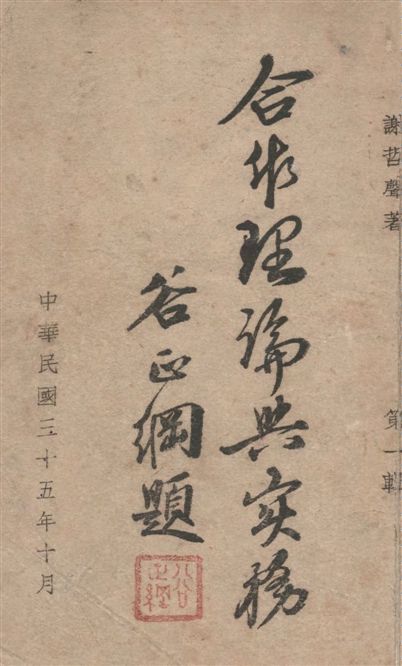 謝哲聲著 第一輯
合作理論與实務
谷正綱題
谷正綱
中華民國三十五年十月